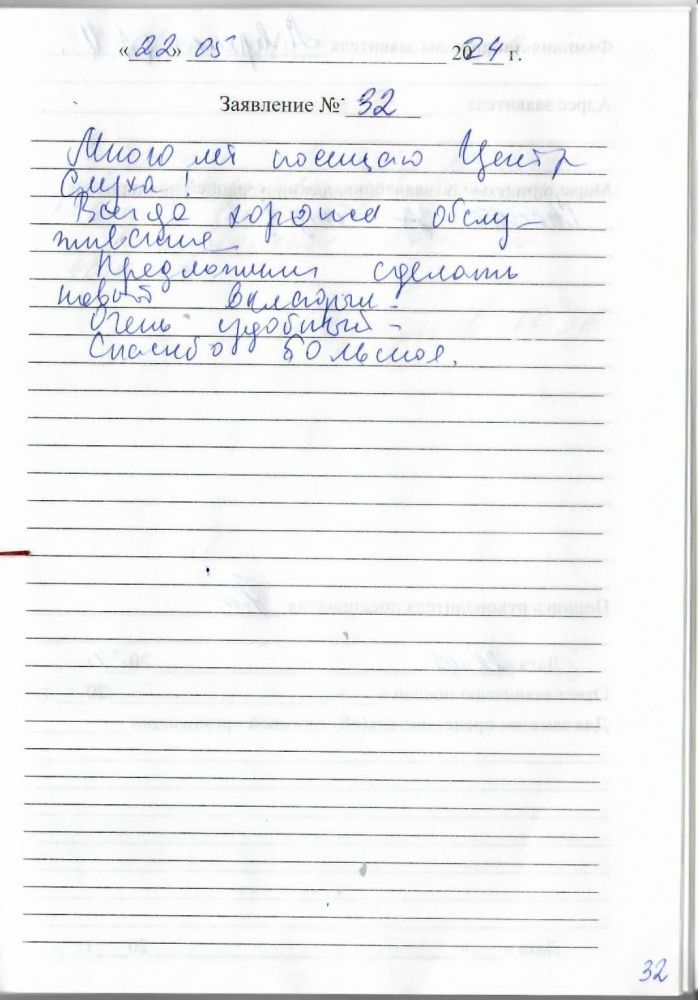 «22» 05 2024 г.
Заявление № 32
Много лет посещаю Центр
Слуха!
Всегда хорошее обслу-
живание.
Предложили сделать
новый вкладыш.
Очень удобный.
Спасибо большое.
32